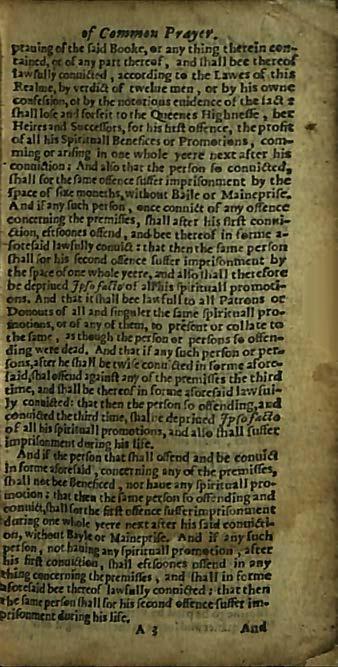 of Common Prayer.
prauing of the said Booke, or any thing therein con-
tained, or of any part thereof, and shall bee thereof
lawfully conuicted, according to the Lawes of this
Realme, by verdict of twelue men, or by his owne
confession, or by the notorious euidence of the fact:
shall lose and forfeit to the Queenes Highnesse, her
Heires and Successors, for his first offence, the profit
of all his Spirituall Benefices or Promotions, com-
ming or arising in one whole yeere next after his
conuiction: And also that the person so conuicted,
shall for the same offence suffer imprisonment by the
space of sixe moneths, without Baile or Maineprise.
And if any such person, once conuict of any offence
concerning the premisses, shall after his first conui-
ction, eftsoones offend, and bee thereof in forme a-
foresaid lawfully conuict: that then the same person
shall for his second offence suffer imprisonment by
the space of one whole yeere, and also shall therefore
be depriued Ipso facto of all his spirituall promoti-
ons. And that it shall bee lawfull to all Patrons or
Donours of all and singuler the same spirituall pro-
motions, or of any of them, to present or collate to
the same, as though the person or persons so offen-
ding were dead. And that if any such person or per-
sons, after he shall be twise conuicted in forme afore-
said, shal offend against any of the premisses the third
time, and shall be thereof in forme aforesaid lawful-
ly conuicted: that then the person so offending, and
conuicted the third time, shalbe depriued Ipso facto
of all his spirituall promotions, and also shall suffer
imprisonment during his life.
And if the person that shall offend and be conuict
in forme aforesaid, concerning any of the premisses,
shall not bee Beneficed, nor haue any spirituall pro-
motion: that then the same person so offending and
conuict, shall for the first offence suffer imprisonment
during one whole yeere next after his said conuicti-
on, without Bayle or Maineprise. And if any such
person, not hauing any spirituall promotion, after
his first conuiction, shall eftsoones offend in any
thing concerning the premisses, and shall in forme
aforesaid bee thereof lawfully conuicted: that then
the same person shall for his second offence suffer im-
prisonment during his life.
A 3 And